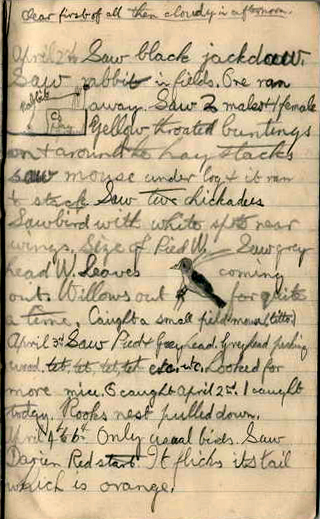 clear first of all then cloudy in afternoon.
April 2nd Saw black jackdaw.
Saw rabbit in fields. One ran
rabbit
away. Saw 2 males + 1 female
Yellow throated buntings
on + around the hay stacks
saw mouse under log + it ran
to stack. Saw two chickadees
Saw bird with white spots near
wings. Size of Pied W. Saw grey
head W. Leaves coming
out. Willows out for quite
a time. Caught a small field mouse
April 3rd Saw Pied + Greyhead. Greyhead pecking
wood. tet, tet, tet, tet etc. etc. Looked for
more mice. 5 caught April 2nd. 1 caught
today. Rooks nest pulled down.
April 4th 6th Only usual birds. Saw
Daurien Redstart. It flicks its tail
which is orange.